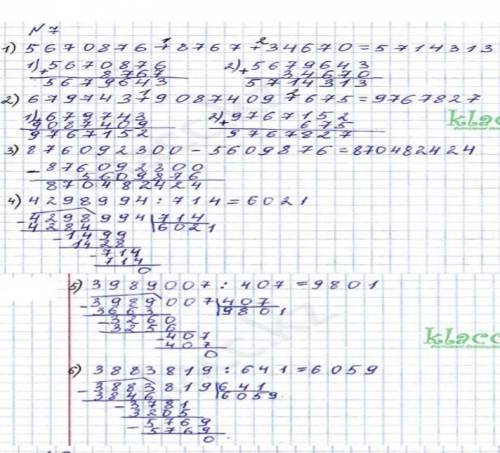 N 7
1) 5670876 + 8767 + 34670 = 5714313
1) 5670876 2) 5679643
+ 8767 + 34670
5679643 5714313
2) 679743 + 9087409 + 675 = 9767827
1) 679743 2) 9767152
9087409 + 675
9767152 9767827
klacc
3) 876092300 - 5609876 = 870482424
- 876092300
5609876
870482424
4) 4298994 : 714 = 6021
- 4298994 714
4284 6021
- 1499
1428
- 714
714
0
5) 3989007 : 407 = 9801
- 3989007 407
3663 9801
- 3260
3256
- 407
407
0
klacc
6) 3883819 : 641 = 6059
- 3883819 641
3846 6059
- 3781
3205
- 5769
5769
0